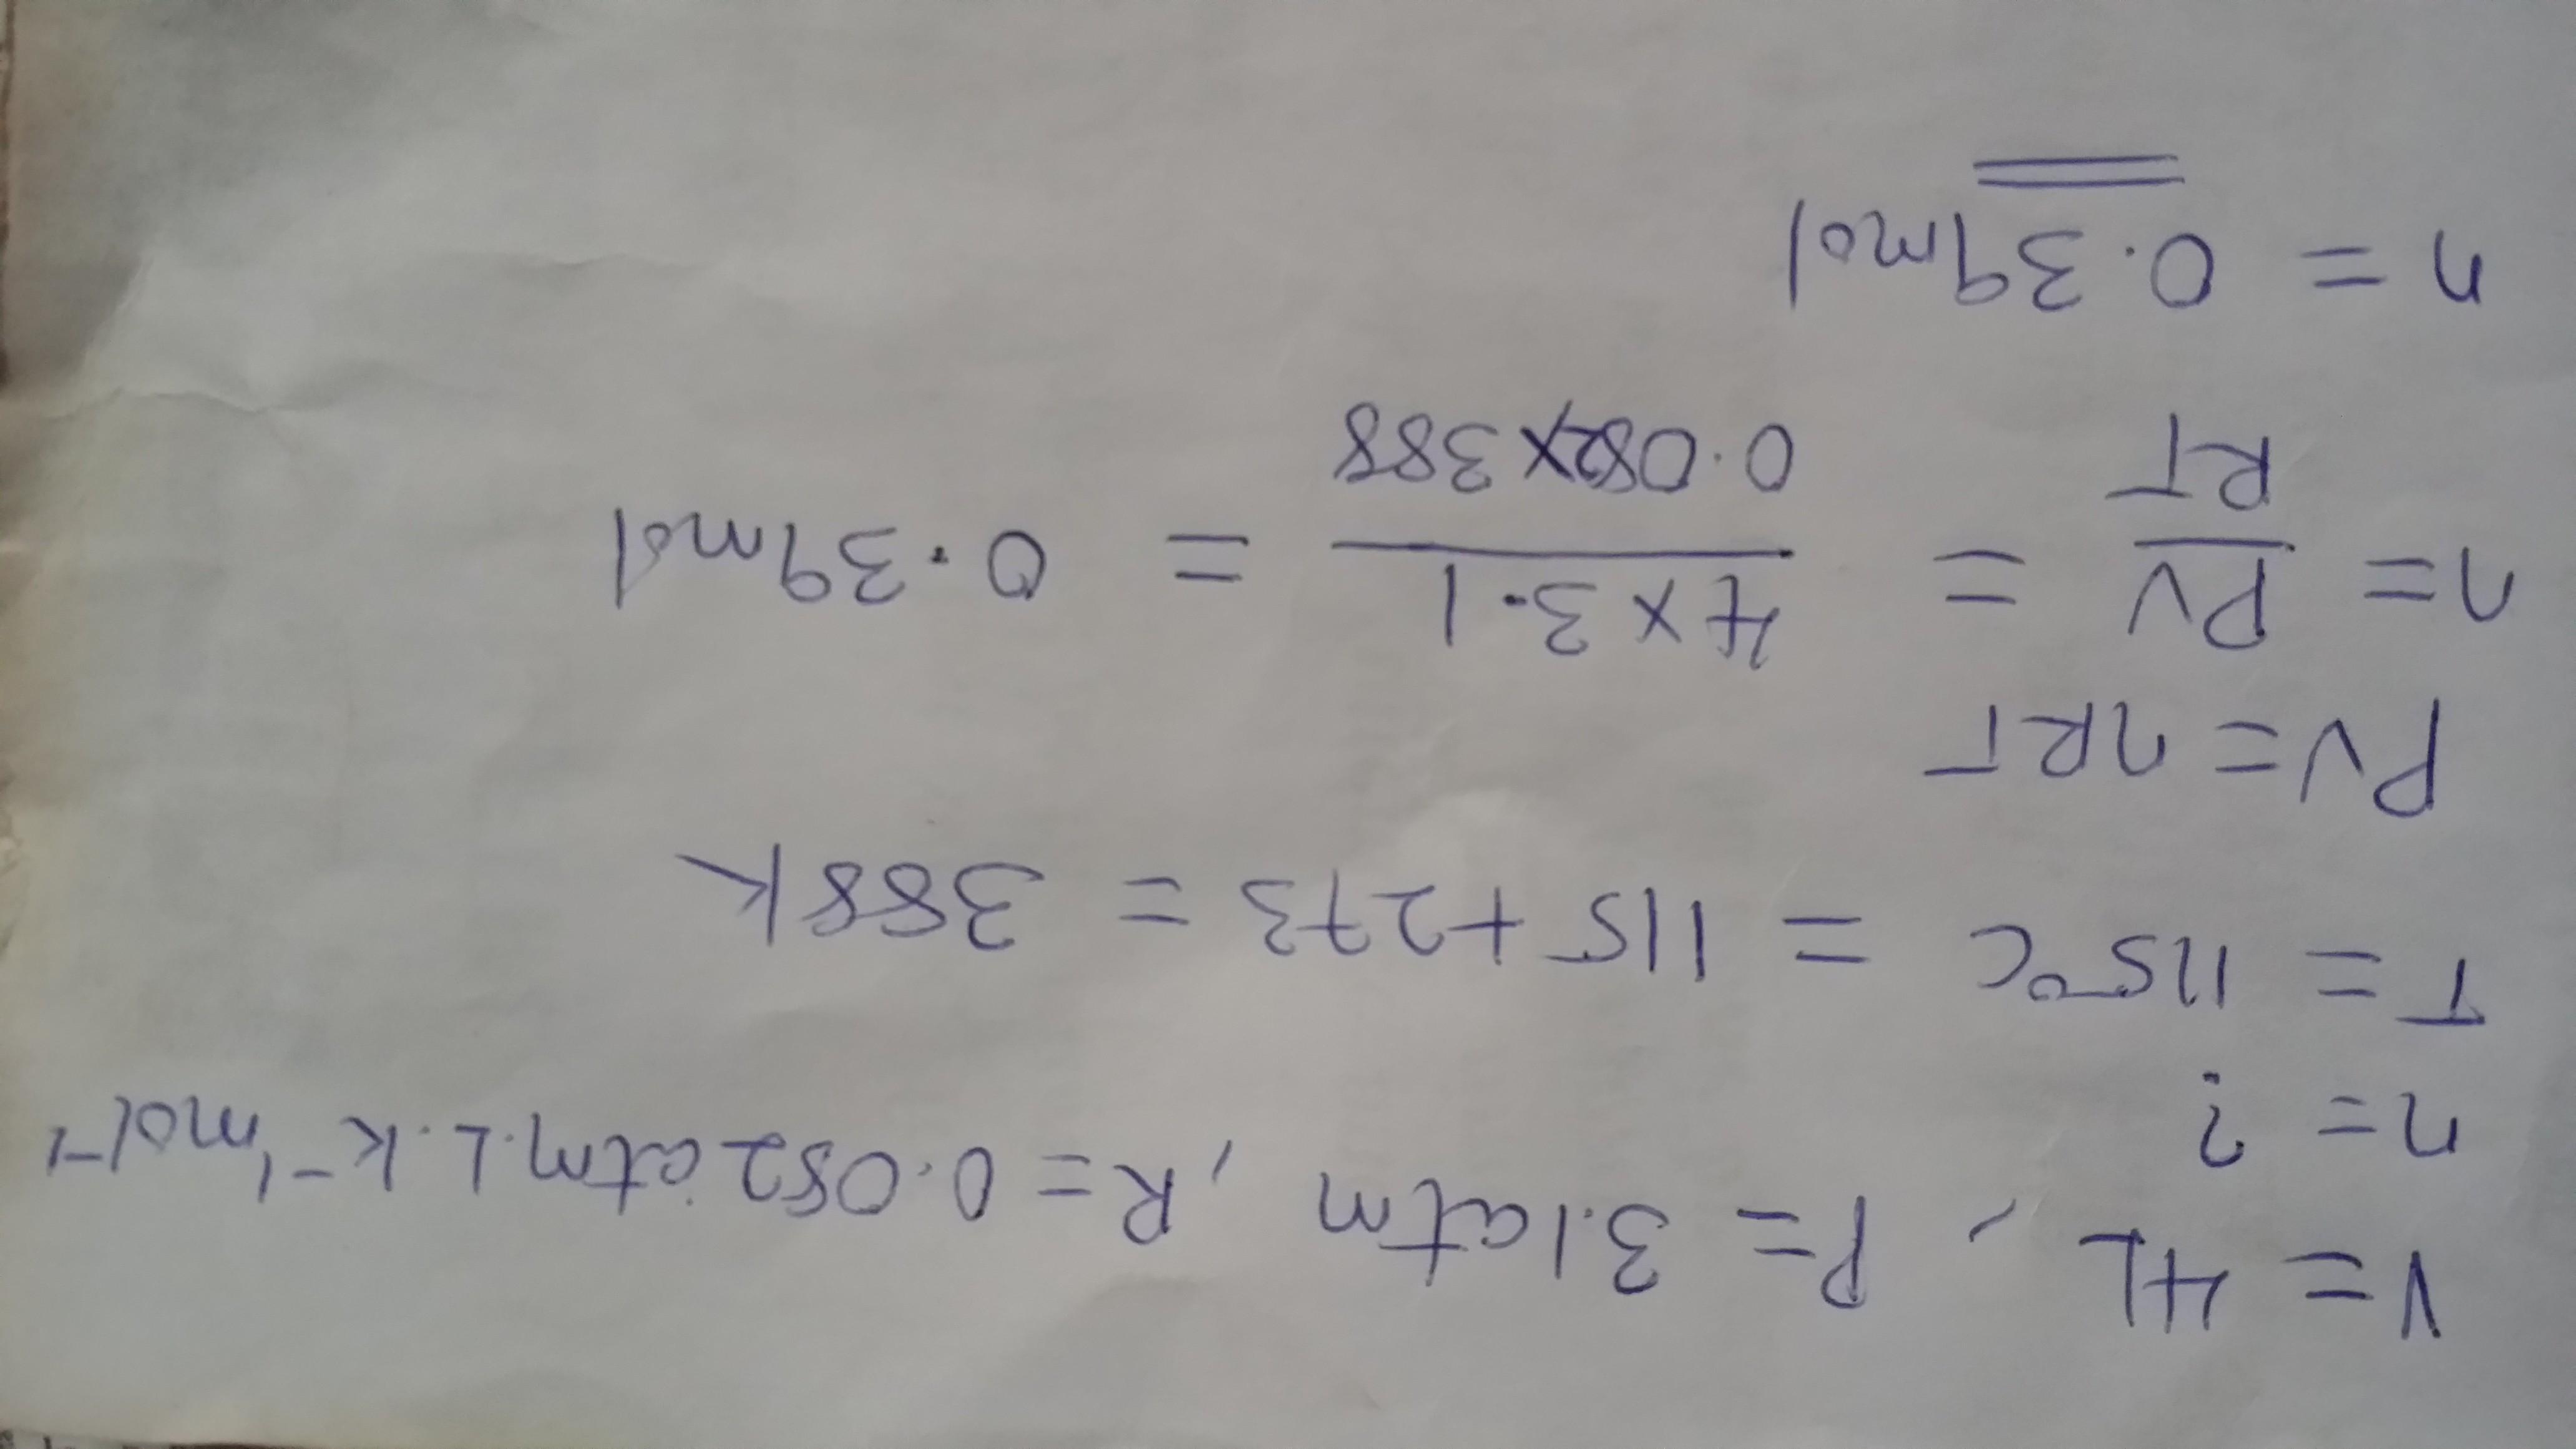 V = 4L , P = 3.1atm , R = 0.082atm.L.K⁻¹mol⁻¹
n = ?
T = 115°C = 115 + 273 = 388K
PV = nRT
n = PV/RT = 4 x 3.1/0.082 x 388 = 0.39mol
n = 0.39mol